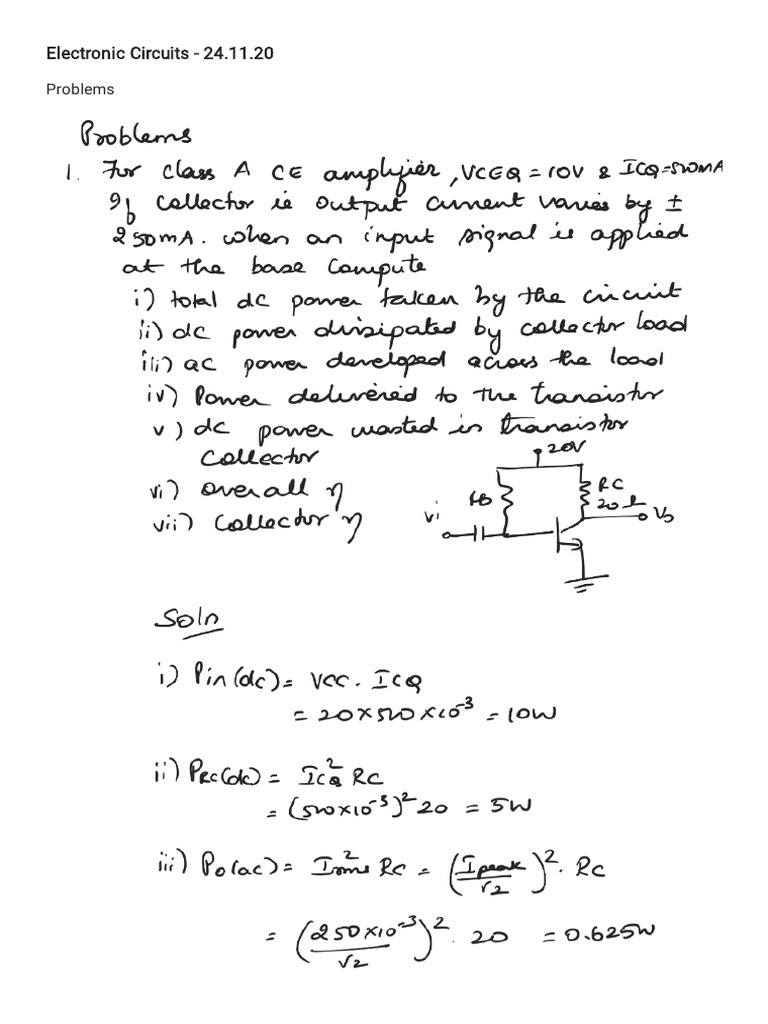 Electronic Circuits - 24.11.20
Problems
Problems
1. For class A CE amplifier, VCEQ = 10V & ICQ=500mA
If collector ie output current varies by ±
250mA. when an input signal is applied
at the base Compute
i) total dc power taken by the circuit
ii) dc power dissipated by collector load
iii) ac power developed across the load
iv) Power delivered to the transistor
v) dc power wasted in transistor
Collector
20V
vi) overall η
RB
RC
20Ω
vii) Collector η
Vi
Vo
Soln
i) Pin(dc) = VCC. ICQ
= 20×500×10⁻³ = 10W
ii) PRC(dc) = ICQ² RC
= (500×10⁻³)² 20 = 5W
iii) Po(ac) = Irms² RC = (Ipeak/√2)². RC
= (250×10⁻³/√2)². 20 = 0.625W